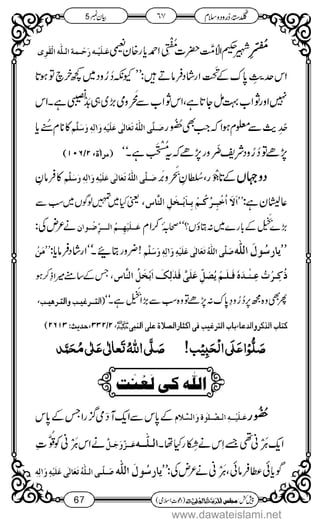 گلدستۂ دُرُود و سلام ٦٧ بیان نمبر 5
مُفَسِّرِ شہیر حکیمُ الْاُمَّت حضرتِ مُفتی احمد یار خان نعیمی عَلَیْہِ رَحمۃُ اللہِ الْقَوِی
اس حدیثِ پاک کے تحت ارشاد فرماتے ہیں: ’’کیونکہ دُرُود میں کچھ خرچ تو ہوتا
نہیں اور ثواب بہت مل جاتا ہے، اس ثواب سے محرومی بڑی ہی بدنصیبی ہے۔ اس
حدیث سے معلوم ہوا کہ جب بھی حُضُور صَلَّی اللہُ تَعَالٰی عَلَیْہِ وَاٰلِہٖ وَسَلَّم کا نام سُنے یا
پڑھے تو دُرُود شریف ضرور پڑھے کہ یہ مُسْتَحَب ہے۔‘‘ (مرآۃ، ١٠٦/٢)
دو جہاں کے تاجْوَر، سلطانِ بَحرو بَر صَلَّی اللہُ تَعَالٰی عَلَیْہِ وَاٰلِہٖ وَسَلَّم کا فرمانِ
عالیشان ہے: ’’اَلَا اُخْبِرُکُمْ بِاَبْخَلِ النَّاسِ، یعنی کیا میں تمہیں لوگوں میں سب سے
بڑے بخیل کے بارے میں نہ بتاؤں؟‘‘ صحابہ کرام عَلَیْہِمُ الرِّضْوَان نے عرض کی:
’’یارسُولَ اللہ صَلَّی اللہُ تَعَالٰی عَلَیْہِ وَاٰلِہٖ وَسَلَّم! ضرور بتائیے۔‘‘ ارشاد فرمایا: ’’مَنْ
ذُکِرْتُ عِنْدَہٗ فَلَمْ یُصَلِّ عَلَیَّ فَذٰلِکَ اَبْخَلُ النَّاسِ، جس کے سامنے میرا ذکر ہو
پھر بھی وہ مجھ پر دُرُودِ پاک نہ پڑھے تو وہ سب سے بڑا بخیل ہے۔‘‘ (الترغیب والترھیب،
کتاب الذکر والدعاء، باب الترغیب فی اکثار الصلاۃ علی النبی ﷺ، ٣٣٢/٢، حدیث: ٢٦١٣)
صَلُّوْا عَلَی الْحَبِیْب! صَلَّی اللہُ تَعَالٰی عَلٰی مُحَمَّد
اللہ کی لَعْنَت
حُضُور عَلَیْہِ الصَّلٰوۃُ وَالسَّلَام کے پاس سے ایک آدمی گزرا جس کے پاس
ایک ہرنی تھی جسے اس نے شکار کیا تھا۔ اللہ عَزَّوَجَلَّ نے اس ہرنی کو قُوَّتِ
گویائی عطا فرمائی، ہرنی نے عرض کی: ’’یارسُولَ اللہ صَلَّی اللہُ تَعَالٰی عَلَیْہِ وَاٰلِہٖ
67
www.dawateislami.net